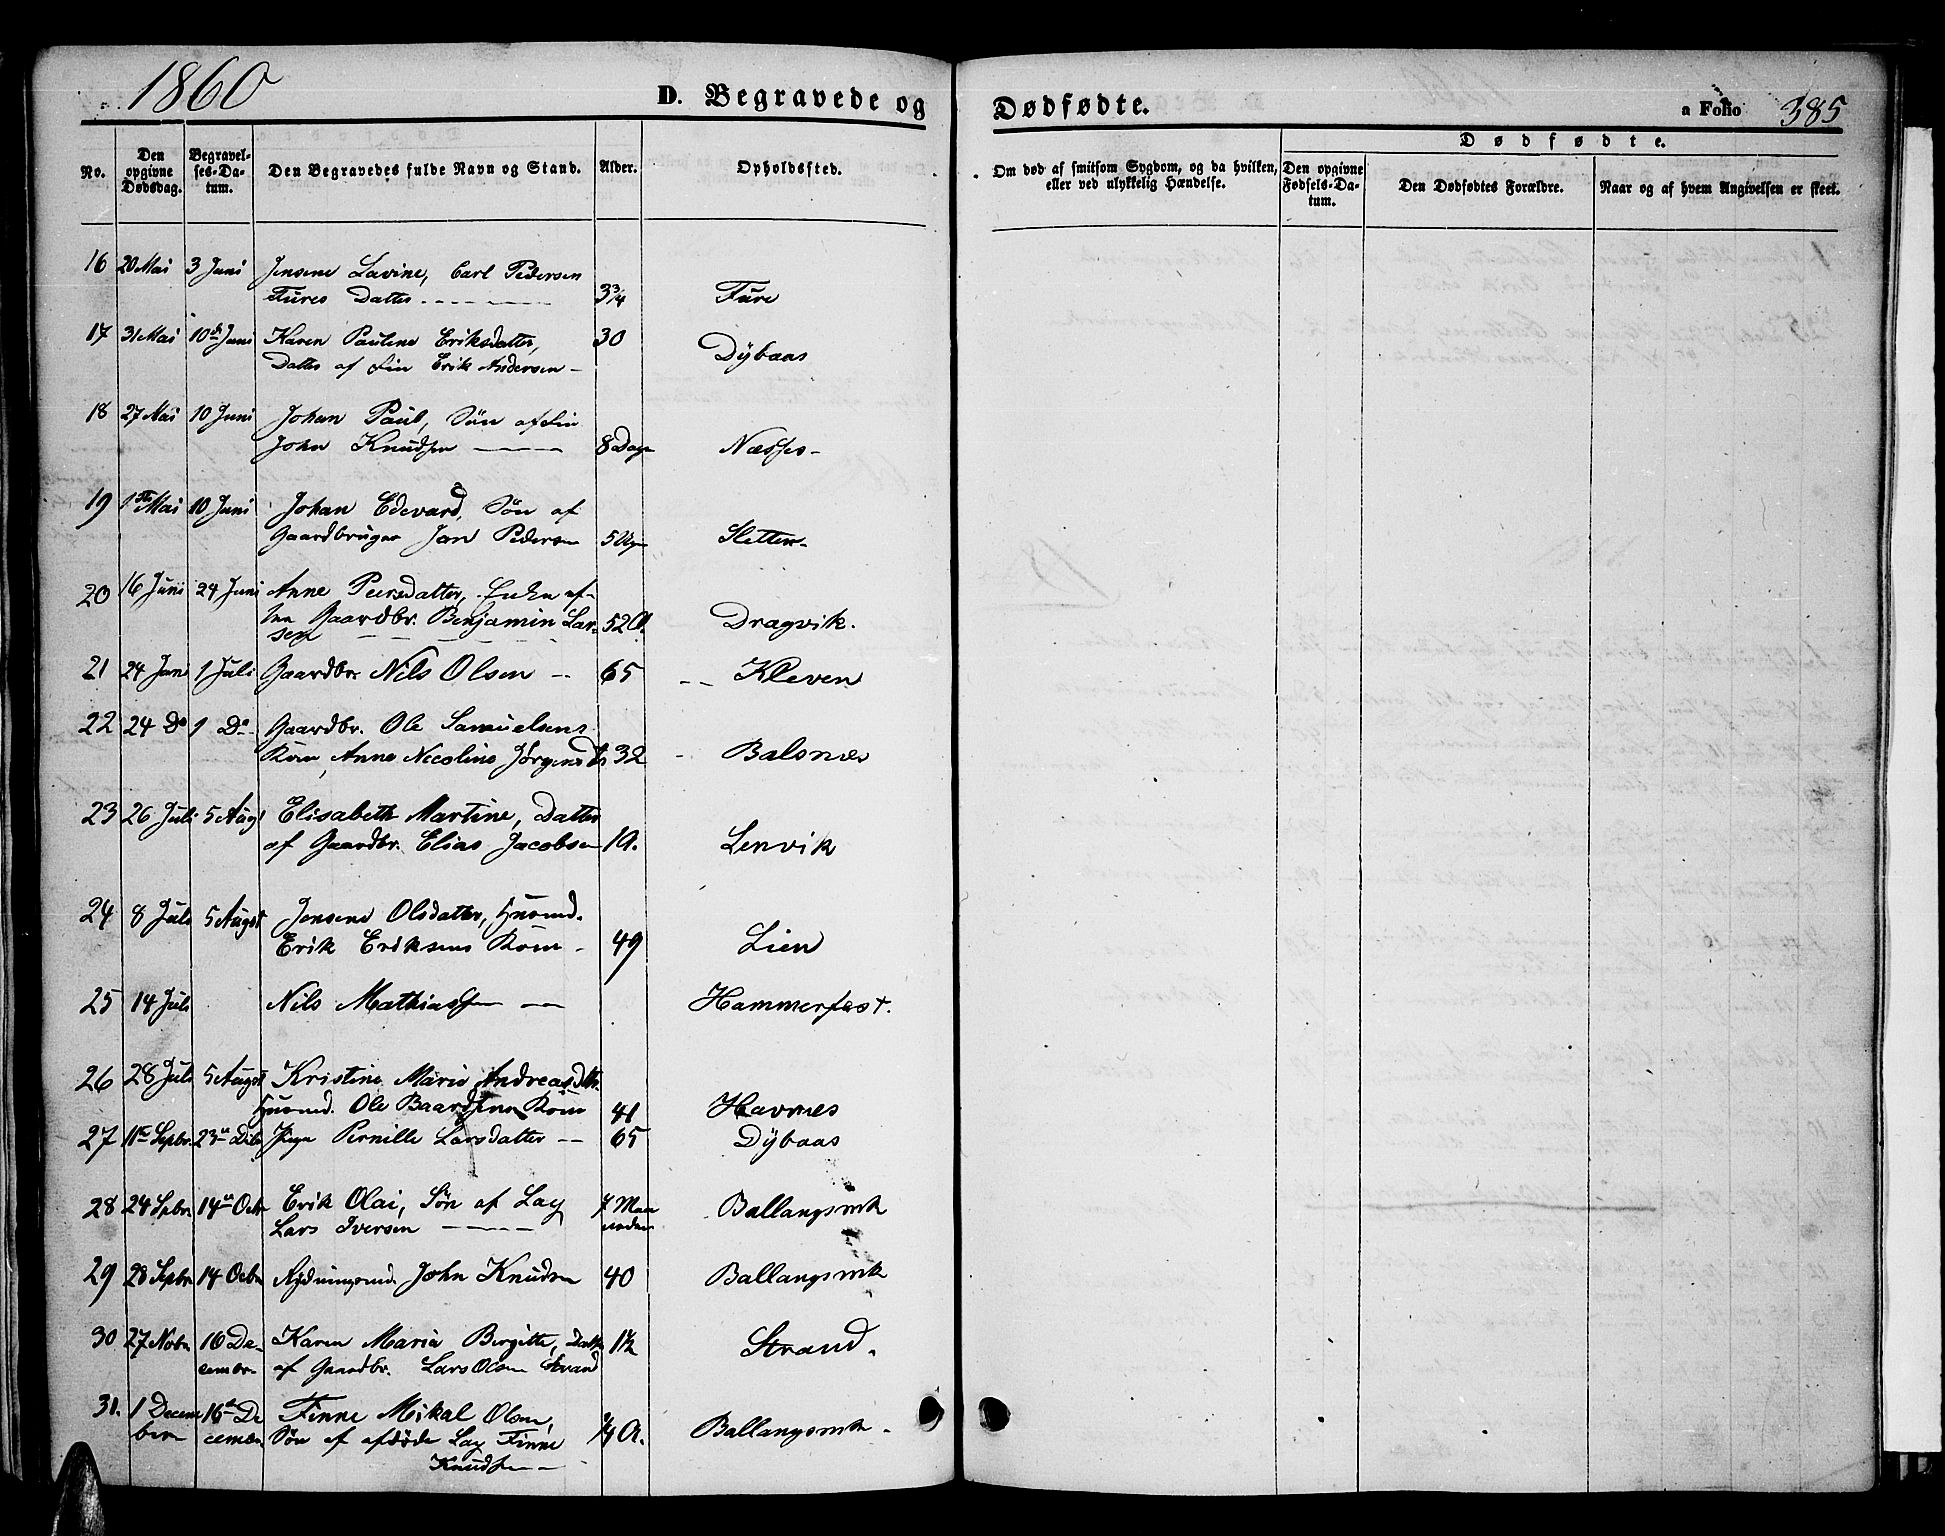 1860
D. Begravede og
Dødfødte.
a Folio 385
No.
Den opgivne Dødsdag.
Begravel-ses-Da-tum.
Den Begravedes fulde Navn og Stand.
Alder.
Opholdssted.
Om død af smitsom Sygdom, og da hvilken, eller ved ulykkelig Hændelse.
Dødfødte.
Den opgivne Fødsels-Da-tum.
Den Dødfødtes Forældre.
Naar og af hvem Angivelsen er skeet.
16 20 Mai 3 Juni Jensene Lavine, Carl Pedersen
Fures Datter 3 3/4 Fure
17 31 Mai 10de Juni Karen Pauline Eriksdatter, 30
Datter af Fin Erik Andersen - Dÿbaas
18 27 Mai 10 Juni Johan Paul, Søn af Fin
John Knudsen 8 Dage Næsse
19 1ste Mai 10 Juni Johan Edevard, Søn af
Gaardbruger Jan Pedersen 5 Uger Sletten
20 16 Juni 24 Juni Anne Peersdatter, Enke af
Gaardbr. Benjamin Lar- 52 A. Dragvik.
sen
21 24 Juni 1 Juli Gaardbr. Nils Olsen 65 Kleven
22 24 Do 1 Do Gaardbr. Ole Samuelsens
Kone, Anne Nicoline Jørgensdtr 32 Balsnes
23 26 Juli 5 Aug Elisabeth Martine, Datter
af Gaardbr. Elias Jacobsen 1 A. Lenvik
24 8 Juli 5 August Jensene Olsdatter, Huusmd.
Erik Eriksens Kone 49 Lien
25 14 Juli Nils Mathiassen Hammerfest.
26 28 Juli 5 August Kristine Marie Andreasdtr.
Huusmd. Ole Baardsens Kone 41 Havnes
27 11te Sepbr. 23de Pige Pernille Larsdatter 65 Dÿbaas
28 24 Sepbr 14de Octr Erik Olai, Søn af Lap 7 Maa
Lars Iversen neder Ballangsmk
29 28 Sepbr 14 Octbr Rydningsmd. John Knudsen 40 Ballangsmk
30 27 Novbr 16 De- Karen Maria Birgitte, Datter 1 1/2 Strand.
cember af Gaardbr. Lars Olsen Strand
31. 1 Decem 16de De Finne Mikal Olsen,
ber cember Søn af afdøde Lap Finne 1/4 A. Ballangsmk
Knudsen